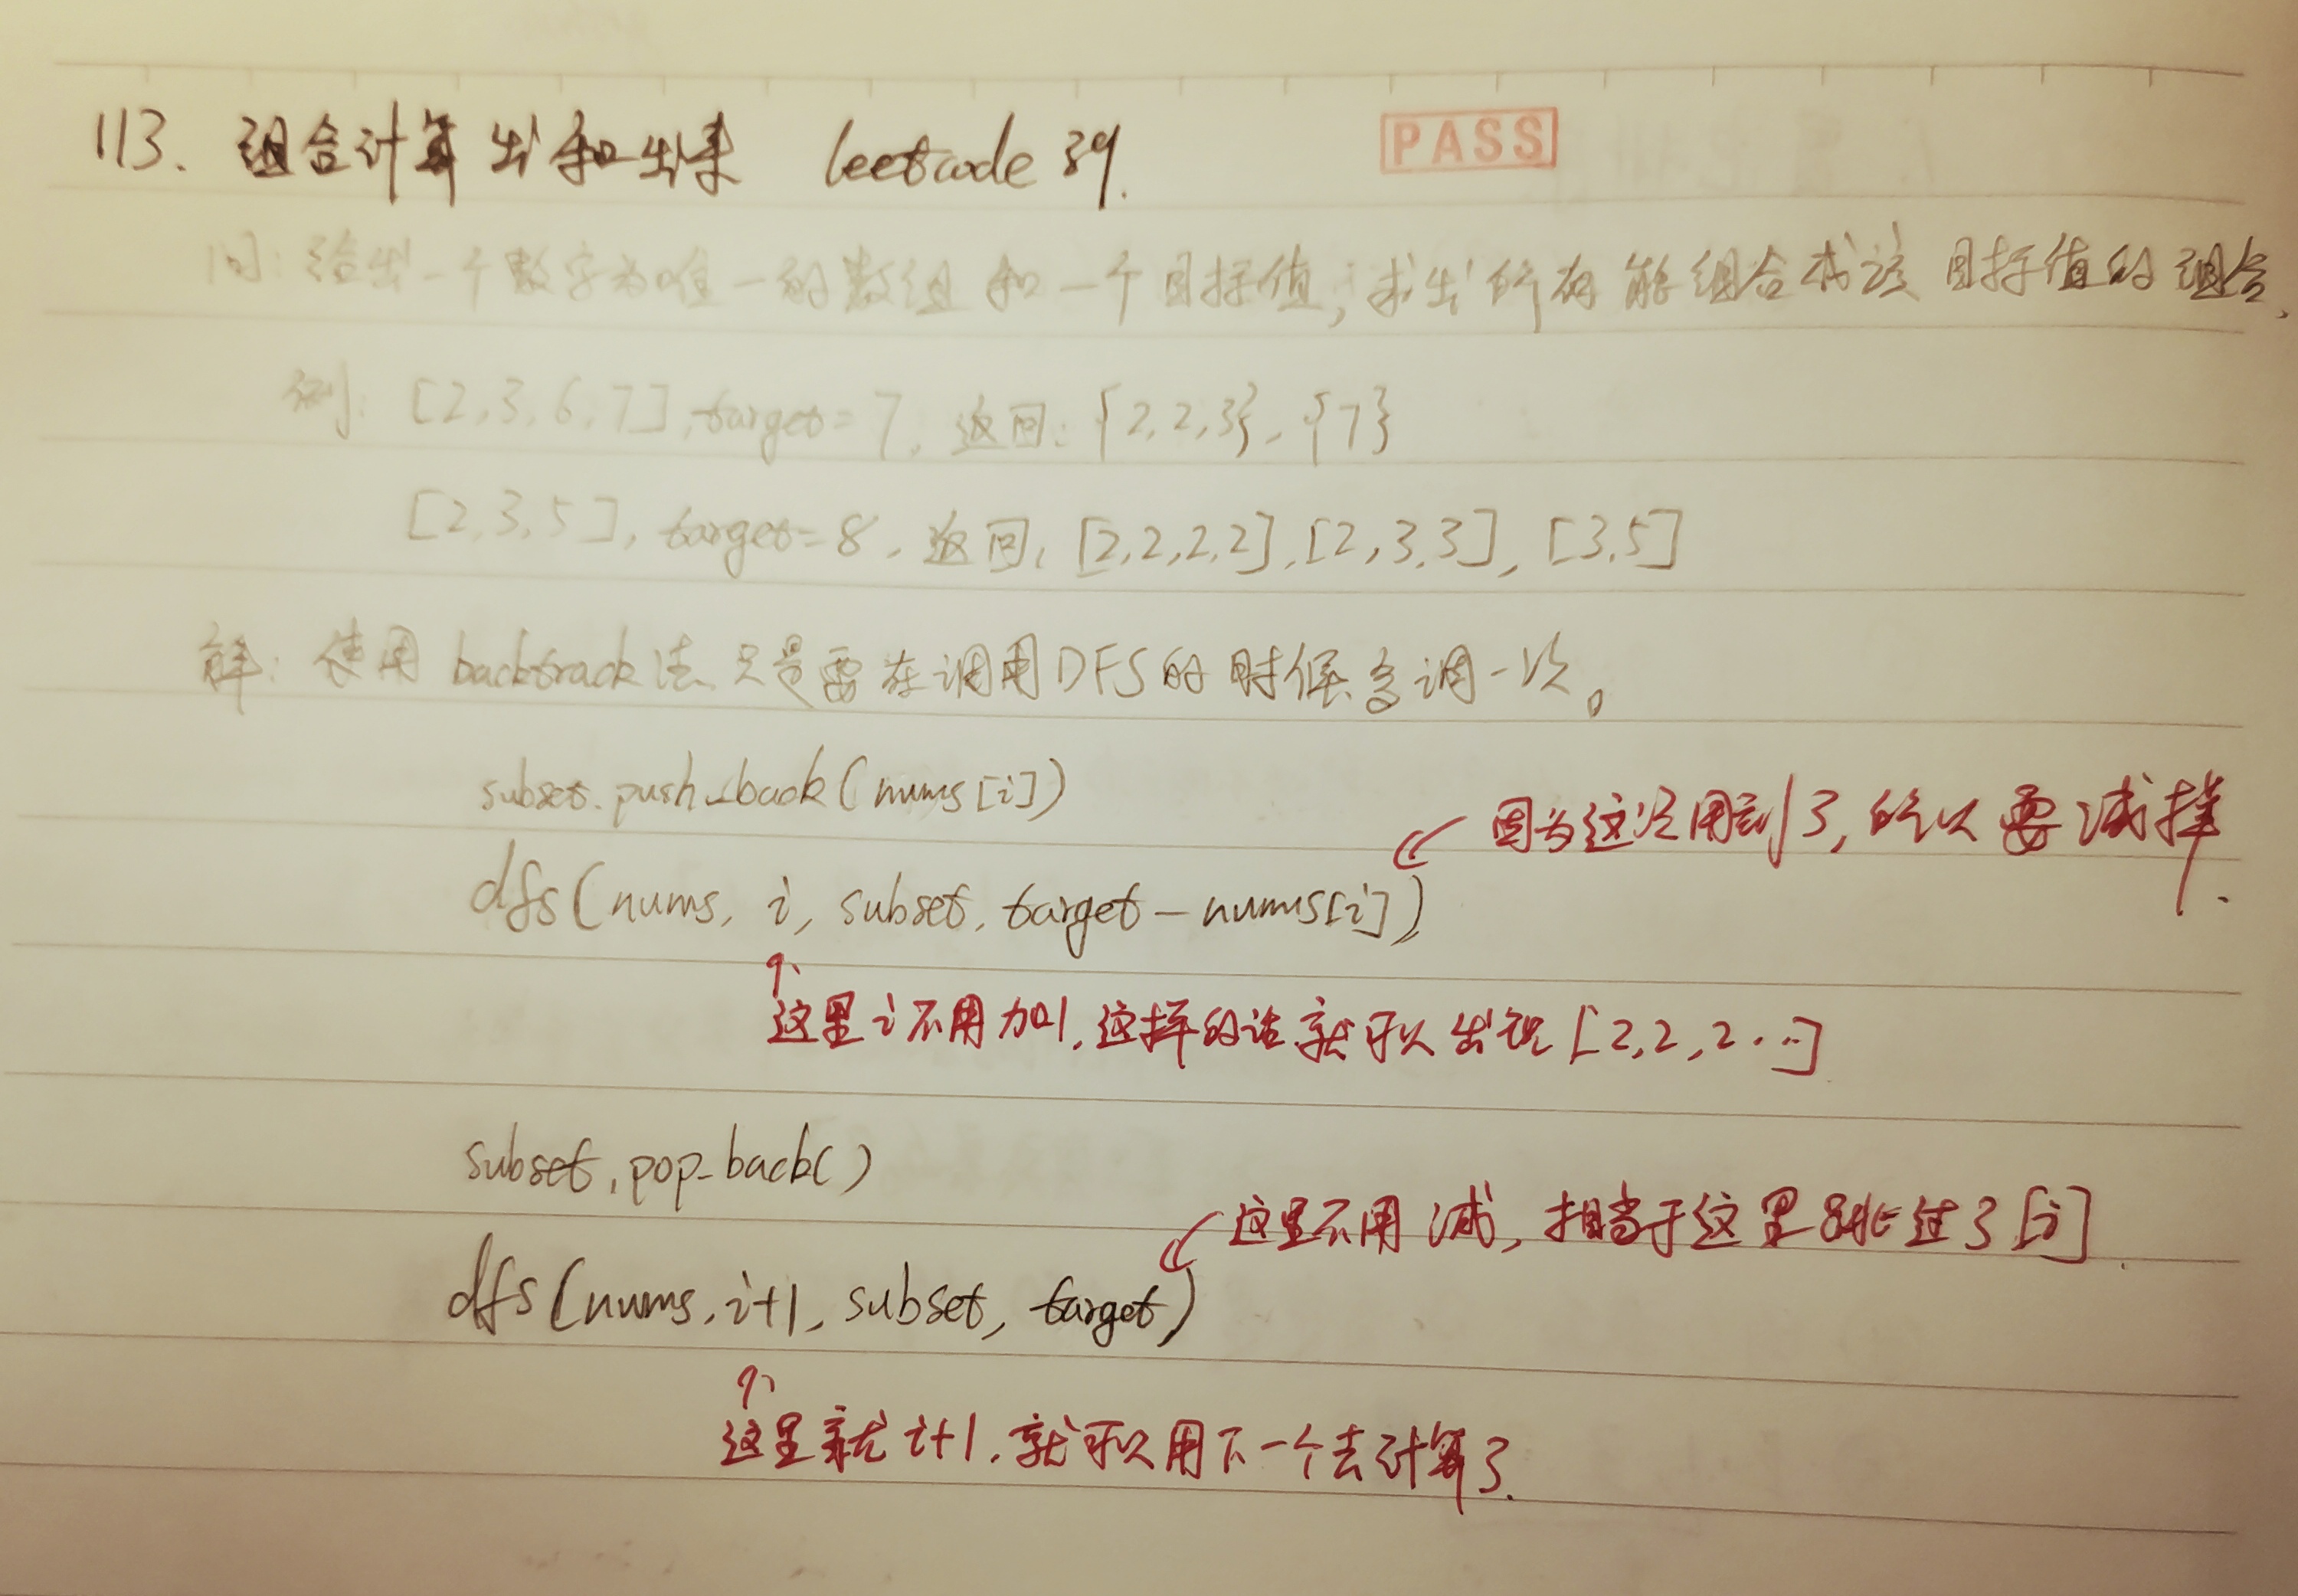 113. 组合计算出和出来 leetcode 39.
PASS
问: 给出一个数字为唯一的数组和一个目标值, 求出所有能组合成该目标值的组合.
例: [2,3,6,7], target=7, 返回: {2,2,3}, {7}
[2,3,5], target=8, 返回, [2,2,2,2], [2,3,3], [3,5]
解: 使用 backtrack 法. 只是要在调用DFS的时候多调一次。
subset.push_back(nums[i])
因为这次用到了, 所以要减掉.
dfs(nums, i, subset, target-nums[i])
这里i不用加1, 这样的话就可以出现[2,2,2...]
subset.pop_back()
这里不用减, 相当于这里跳过了[i].
dfs(nums, i+1, subset, target)
这里就i+1, 就可以用下一个去计算了.